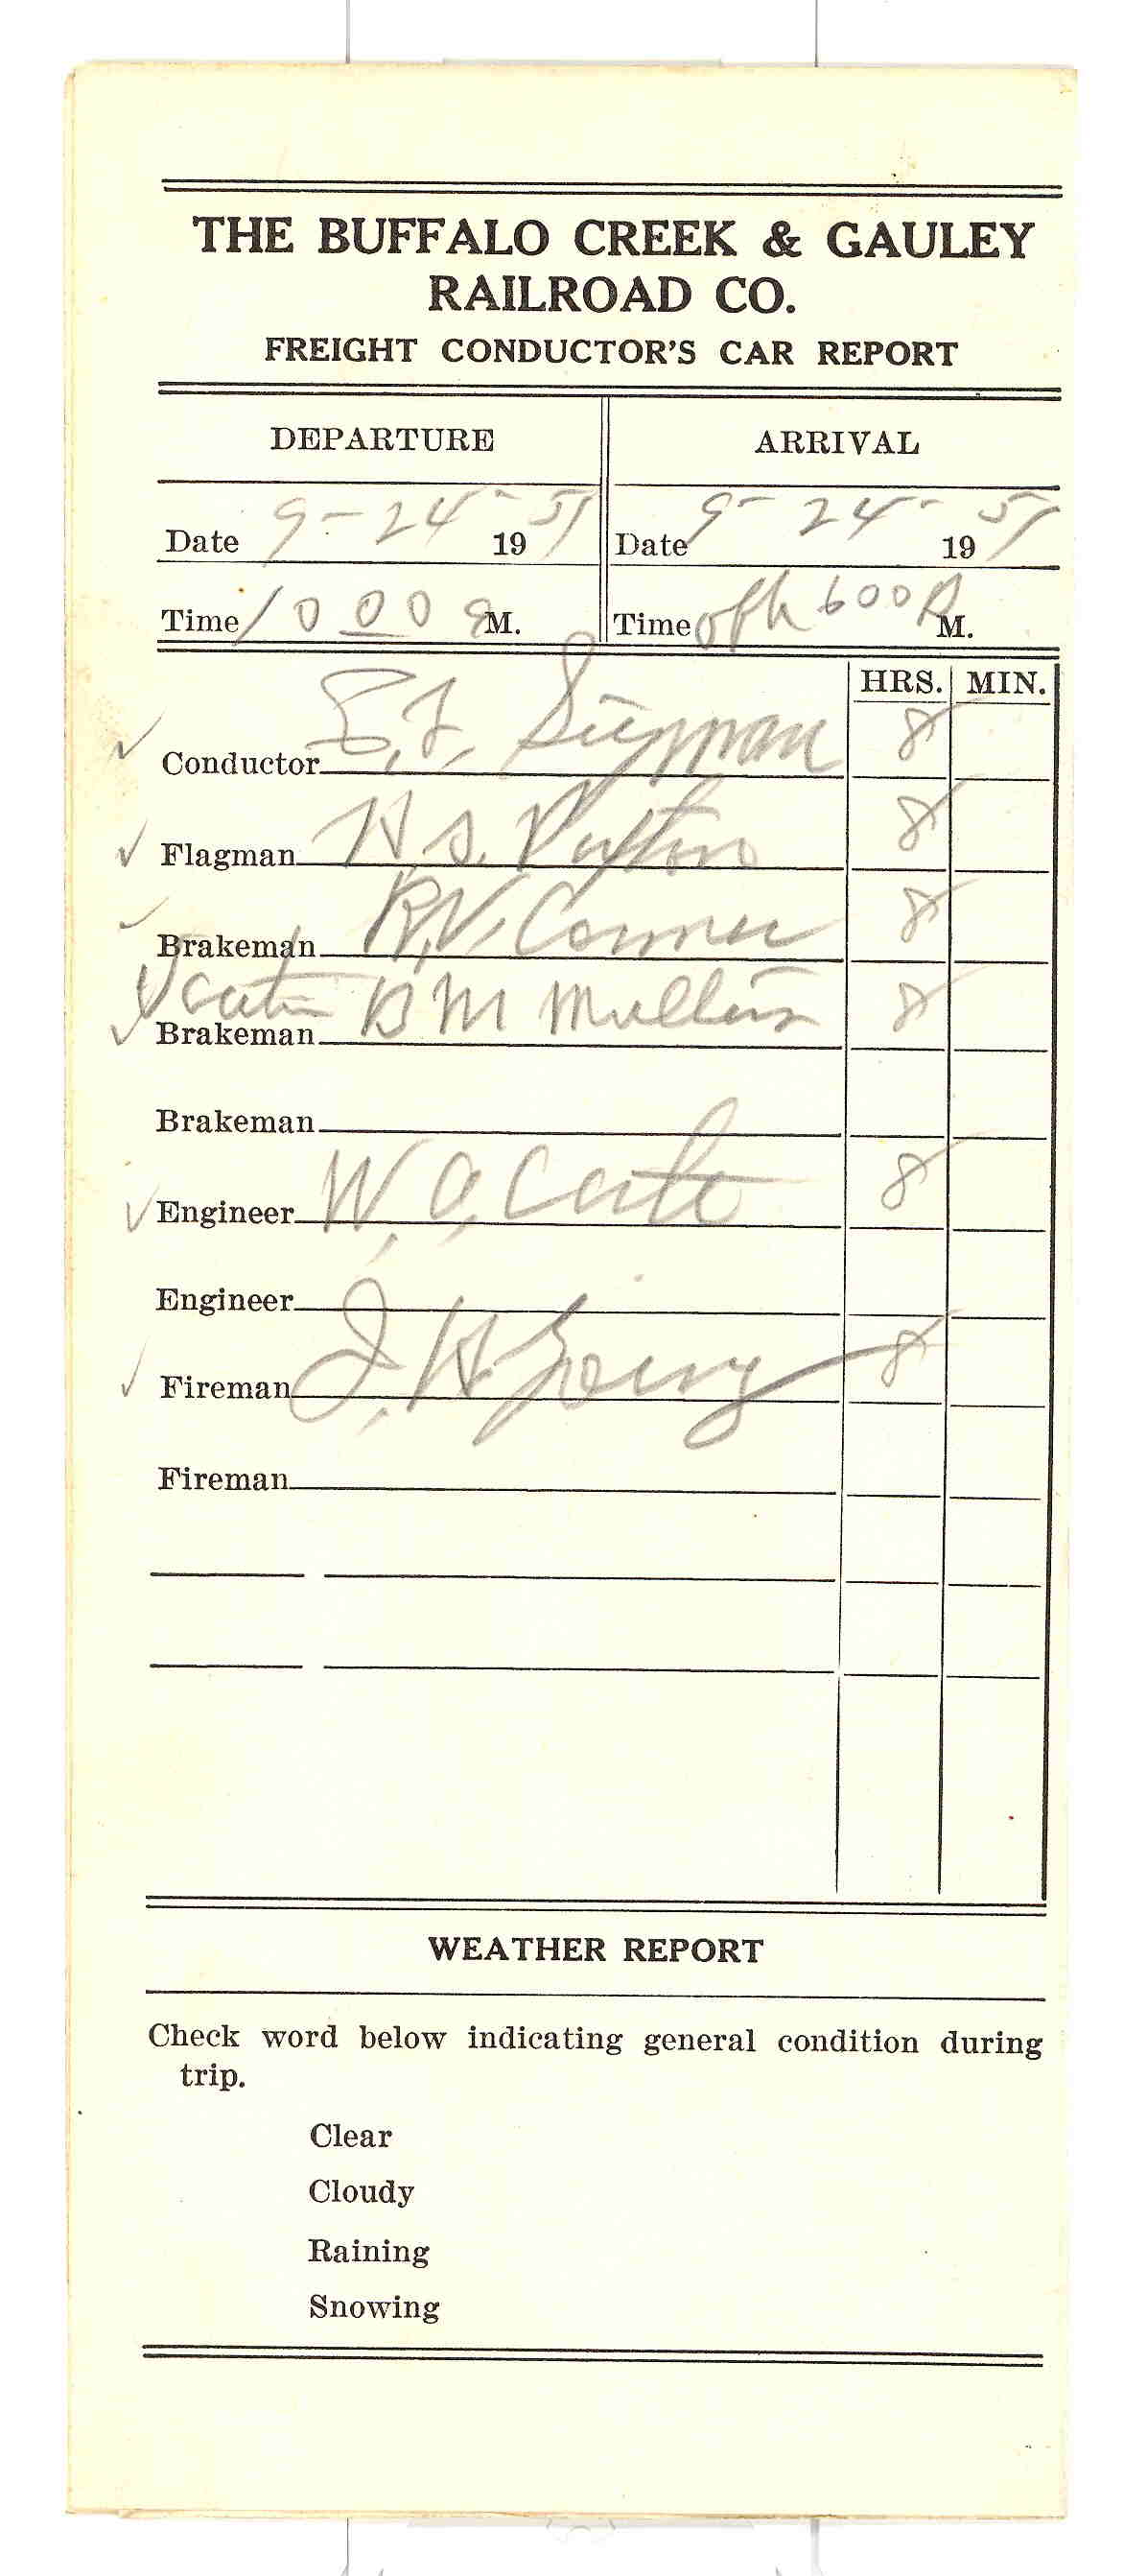 THE BUFFALO CREEK & GAULEY
RAILROAD CO.
FREIGHT CONDUCTOR'S CAR REPORT
DEPARTURE ARRIVAL
Date 9-24- 1951 Date 9-24- 1951
Time 10 00 a M. Time 600 P M.
HRS. MIN.
Conductor E. F. 8
Flagman H S. 8
Brakeman B.V. Conner 8
Brakeman B M Mullins 8
Brakeman
Engineer W. O. 8
Engineer
Fireman J. H 8
Fireman
WEATHER REPORT
Check word below indicating general condition during
trip.
Clear
Cloudy
Raining
Snowing